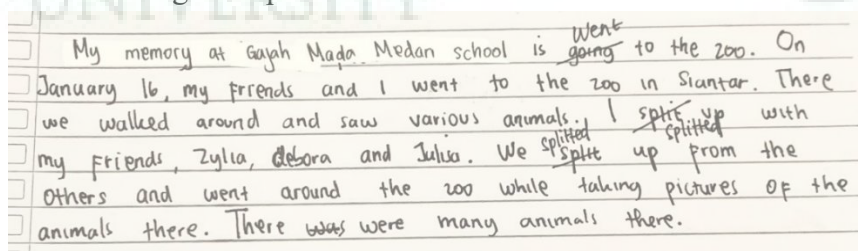 My memory at Gajah Mada Medan school is going went to the zoo. On
January 16, my friends and I went to the zoo in Siantar. There
we walked around and saw various animals. I split up splitted with
my friends, Zylia, debora and Julisa. We split splitted up from the
others and went around the zoo while taking pictures of the
animals there. There was were many animals there.